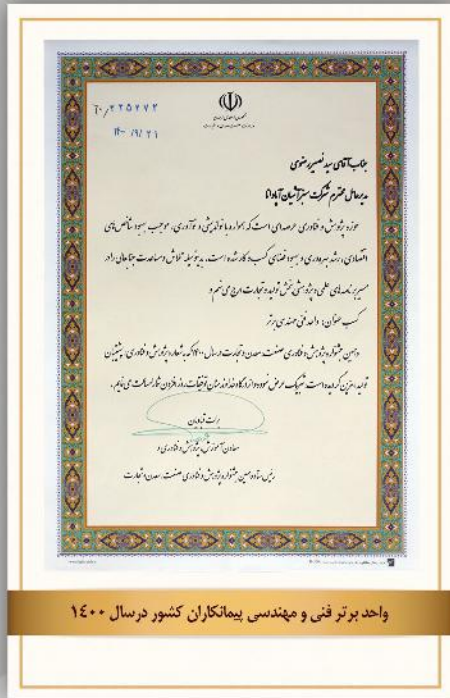 ۲۰/۲۲۵۴۷۲
۱۴۰۰/۹/۲۱
جناب آقای سید نصیر رضوی
مدیرعامل محترم شرکت سبز آشیان آپادانا
حوزه پژوهش و فناوری عرصه‌ای است که همواره با نواندیشی و نوآوری، موجب بهبود شاخص‌های
اقتصادی، رشد بهره‌وری و بهبود فضای کسب و کار شده است. بدینوسیله تلاش و مساعدت جنابعالی را در
مسیر برنامه‌های علمی و پژوهشی بخش تولید و تجارت ارج می‌نهم و
کسب عنوان: واحد فنی مهندسی برتر
در دهمین جشنواره پژوهش و فناوری صنعت، معدن و تجارت در سال ۱۴۰۰ که به شعار پژوهش و فناوری، پشتیبان
تولید، مزین گردیده است، تبریک عرض نموده و از درگاه خداوند منان توفیقات روزافزون شما را مسالت می‌نمایم.
معاون آموزش، پژوهش و فناوری و
رئیس ستاد دهمین جشنواره پژوهش و فناوری صنعت، معدن و تجارت
واحد برتر فنی و مهندسی پیمانکاران کشور درسال ۱۴۰۰